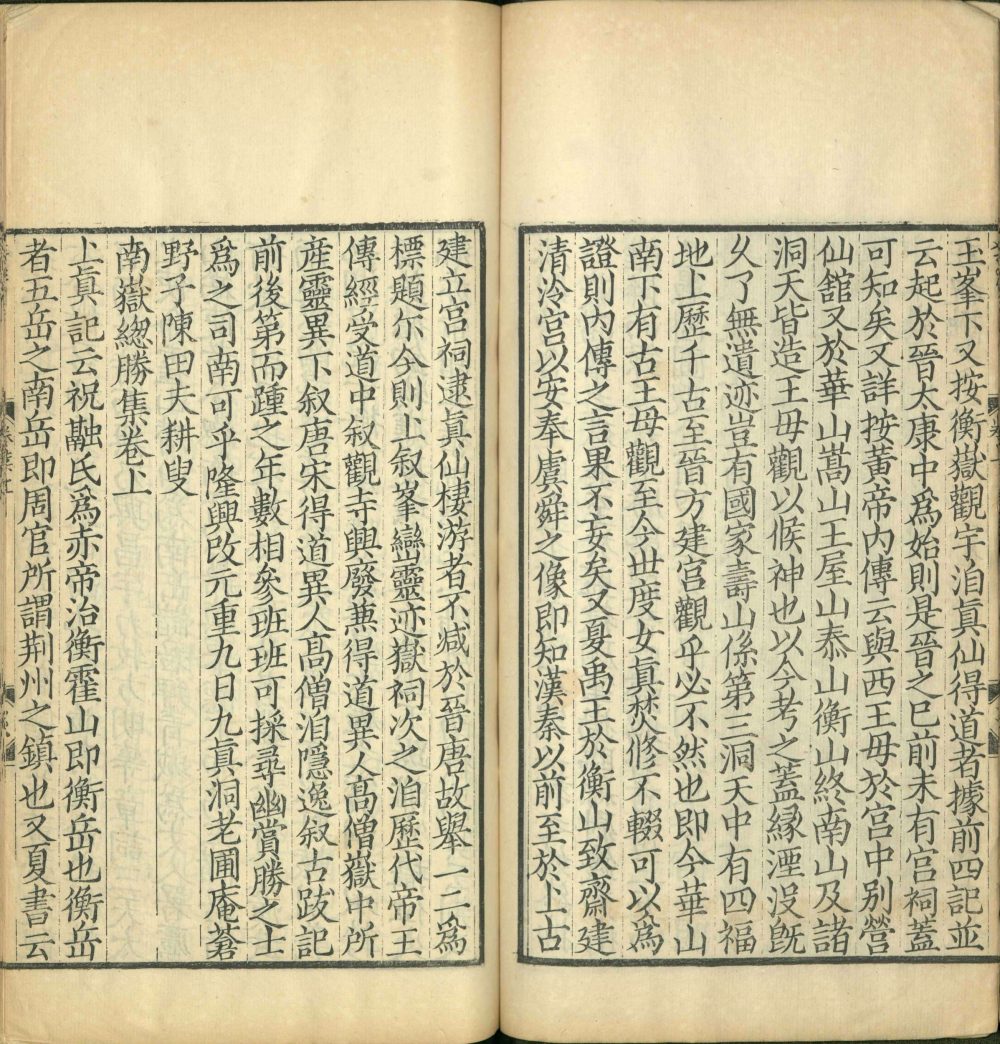 王峯下又按衡嶽觀宇洎真仙得道者據前四記並
云起於晉太康中爲始則是晉之已前未有宫祠蓋
可知矣又詳按黄帝内傳云與西王母於宫中别營
仙舘又於華山嵩山王屋山泰山衡山終南山及諸
洞天皆造王母觀以候神也以今考之蓋縁湮没旣
久了無遺迹豈有國家壽山係第三洞天中有四福
地上歷千古至晉方建宫觀乎必不然也即今華山
南下有古王母觀至今世度女真焚修不輟可以爲
證則内傳之言果不妄矣又夏禹王於衡山致齋建
清泠宫以安奉虞舜之像即知漢秦以前至於上古
建立宫祠逮真仙棲游者不減於晉唐故舉一二爲
標題尓今則上叙峯巒靈迹嶽祠次之洎歷代帝王
傳經受道中叙觀寺興廢兼得道異人髙僧嶽中所
産靈異下叙唐宋得道異人髙僧洎隱逸叙古跋記
前後第而踵之年數相參班班可採尋幽賞勝之士
爲之司南可乎隆興改元重九日九真洞老圃庵蒼
野子陳田夫耕叟
南嶽緫勝集卷上
上真記云祝融氏爲赤帝治衡霍山即衡岳也衡岳
者五岳之南岳即周官所謂荆州之鎮也又夏書云